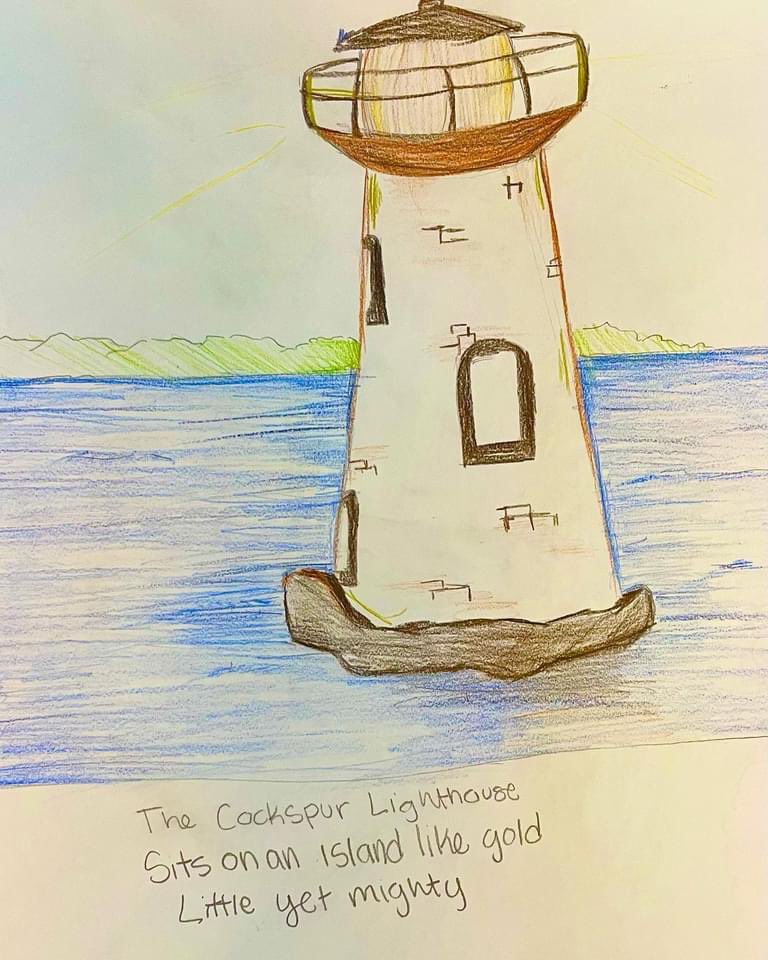 The Cockspur Lighthouse
Sits on an island like gold
Little yet mighty